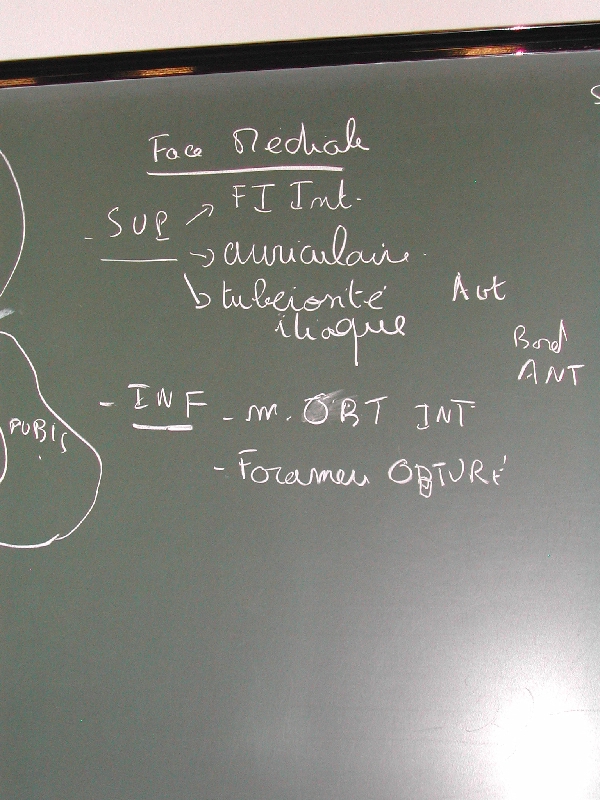 Face Médiale
- SUP → FI Int.
→ auriculaire.
↳ tubérosité
iliaque
Ant
Bord
ANT
- INF - m. OBT INT
- Foramen OBTURÉ
PUBIS